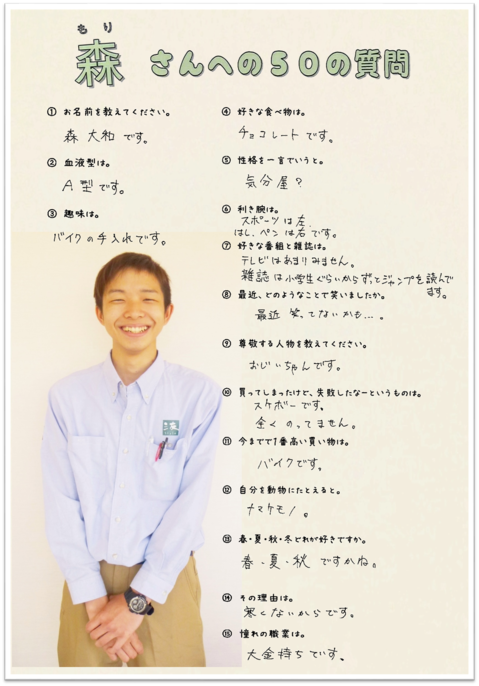 もり
森さんへの50の質問
① お名前を教えてください。
森 大和 です。
② 血液型は。
A型です。
③ 趣味は。
バイクの手入れです。
④ 好きな食べ物は。
チョコレートです。
⑤ 性格を一言でいうと。
気分屋？
⑥ 利き腕は。
スポーツは左、
はし、ペンは右です。
⑦ 好きな番組と雑誌は。
テレビはあまりみません。
雑誌は小学生ぐらいからずっとジャンプを読んで
ます。
⑧ 最近、どのようなことで笑いましたか。
最近 笑ってないかも…。
⑨ 尊敬する人物を教えてください。
おじいちゃんです。
⑩ 買ってしまったけど、失敗したなーというものは。
スケボーです。
全くのってません。
⑪ 今までで1番高い買い物は。
バイクです。
⑫ 自分を動物にたとえると。
ナマケモノ。
⑬ 春・夏・秋・冬どれが好きですか。
春・夏・秋 ですかね。
⑭ その理由は。
寒くないからです。
⑮ 憧れの職業は。
大金持ちです。